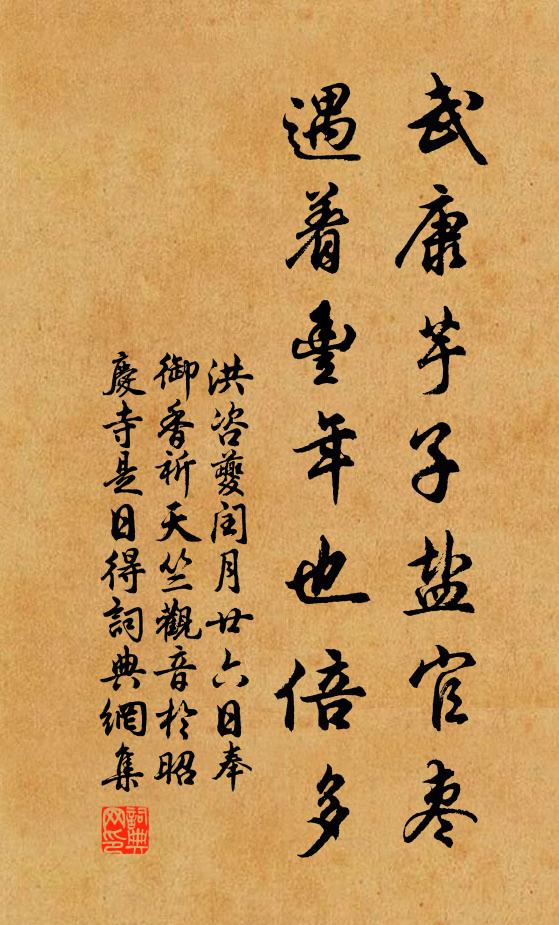 武康芋子盐官枣
遇着豐年也倍多
洪咨夔閏月廿六日奉
御香祈天竺觀音於昭
慶寺是日得詞典網集
詞典网印